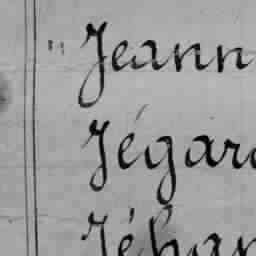 " Jeann
Jégar
Jéhan